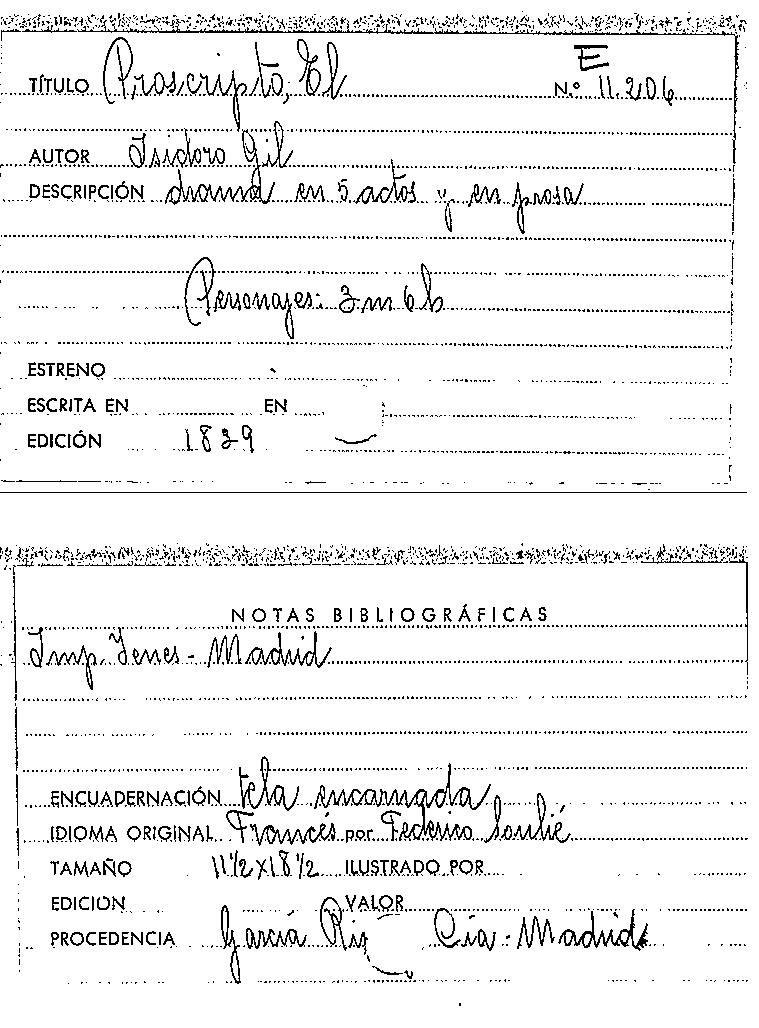 E
TÍTULO Proscripto, El N.º 11.206
AUTOR Isidoro Gil
DESCRIPCIÓN drama en 5 actos y en prosa
Personajes: 3 m 6 h
ESTRENO
ESCRITA EN EN
EDICIÓN 1839
NOTAS BIBLIOGRÁFICAS
Imp. Yenes - Madrid
ENCUADERNACIÓN tela encarnada
IDIOMA ORIGINAL Francés por Federico Soulié
TAMAÑO 11 1/2 X 18 1/2 ILUSTRADO POR
EDICION VALOR
PROCEDENCIA García Cía - Madrid